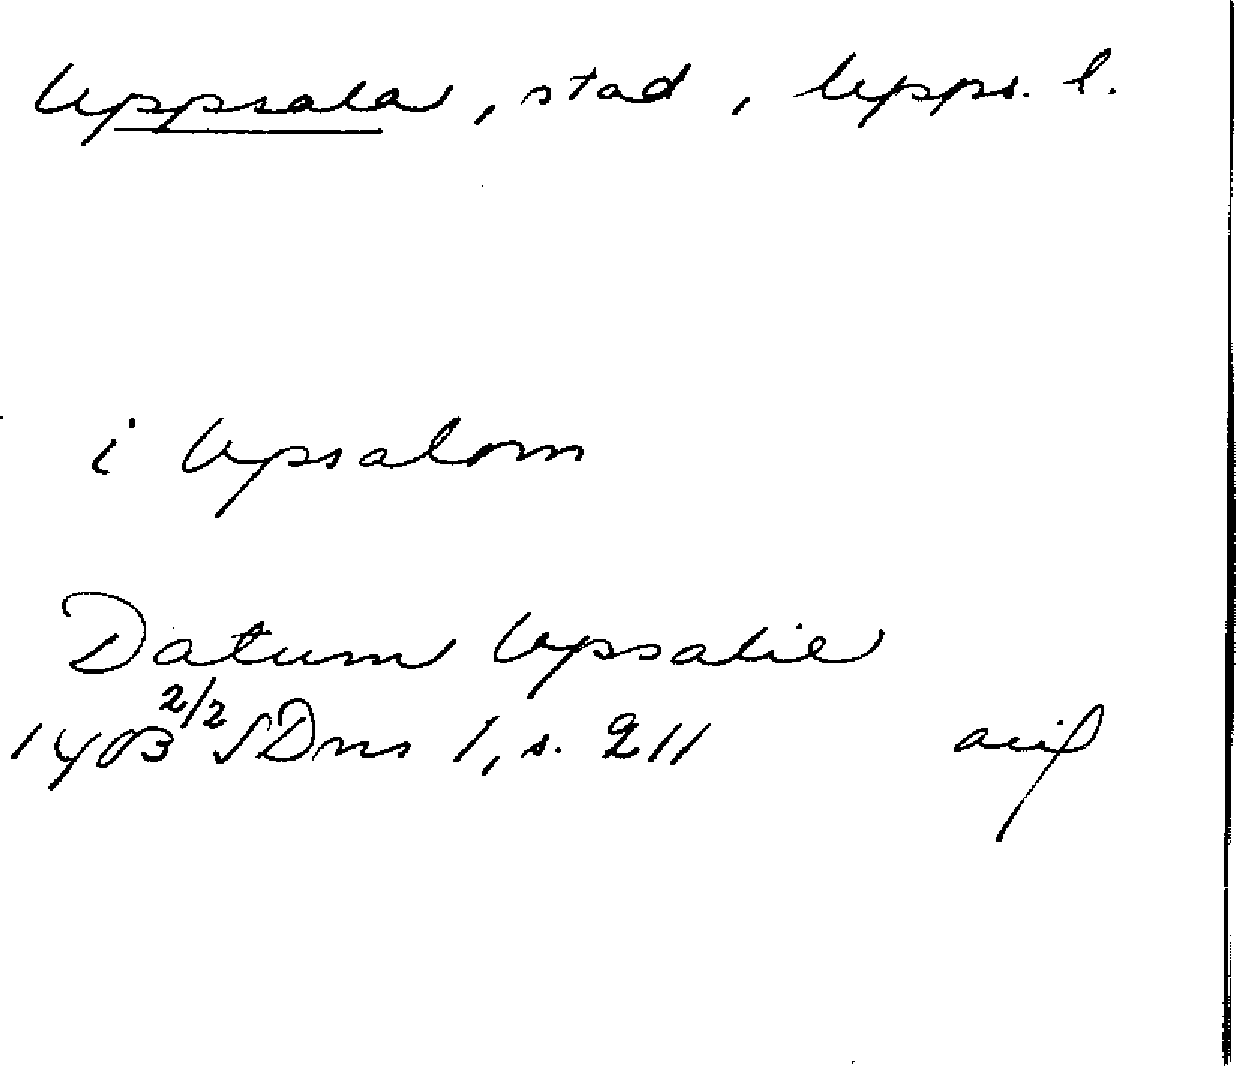 Uppsala, stad, Upps. l.
i Upsalom
Datum Upsalie
1403 2/2 SDns 1, s. 211